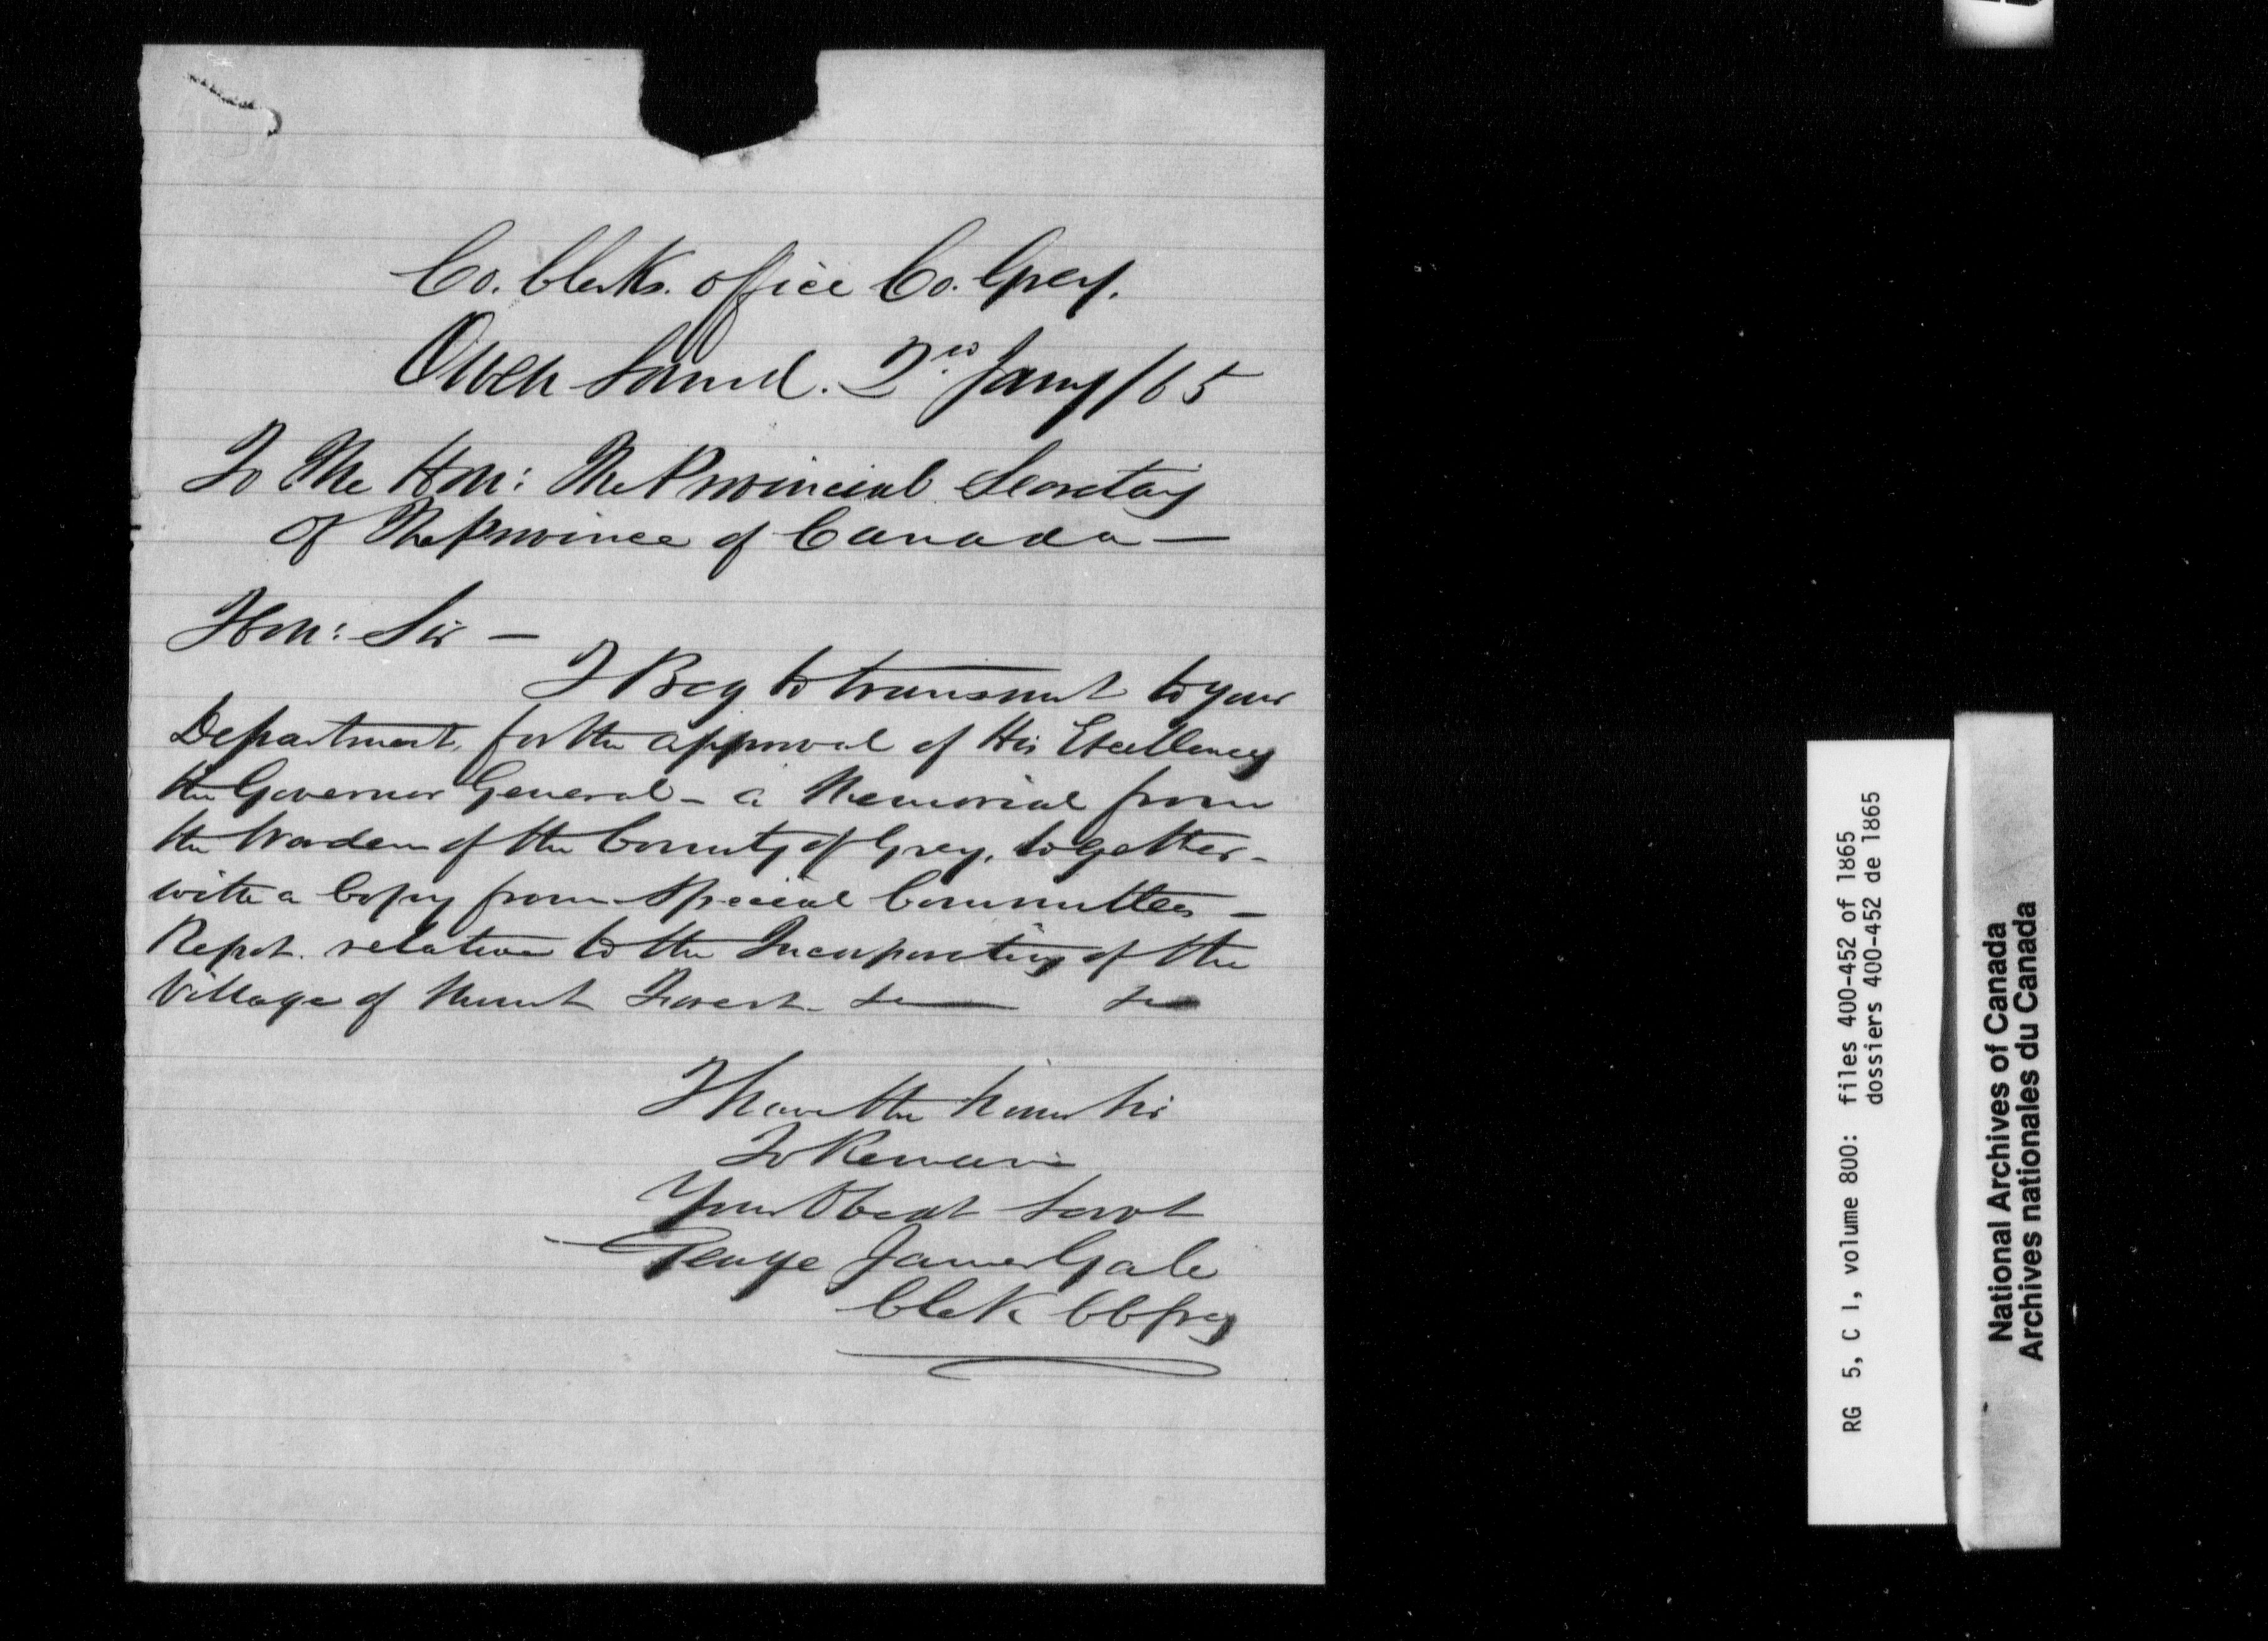 Co. Clerks. office Co. Grey.
Owen Sound. 2nd Jany/65
To The Hon: The Provincial Secretary
of The Province of Canada —
Hon: Sir —
I Beg to transmit to your
Department, for the approval of His Excellency
the Governor General - a Memorial from
the Warden of the County of Grey, together -
with a Copy from Special Committees -
Report. relative to the Incorporating of the
Village of Mount Forest.
I have the honor Sir
To Remain
Your Obedt Servt
George James Gale
Clerk CC Grey
RG 5, C 1, volume 800: files 400-452 of 1865
dossiers 400-452 de 1865
National Archives of Canada
Archives nationales du Canada